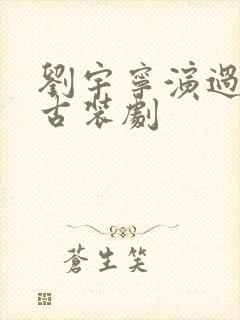 劉宇寧演過
古裝劇
蒼生笑